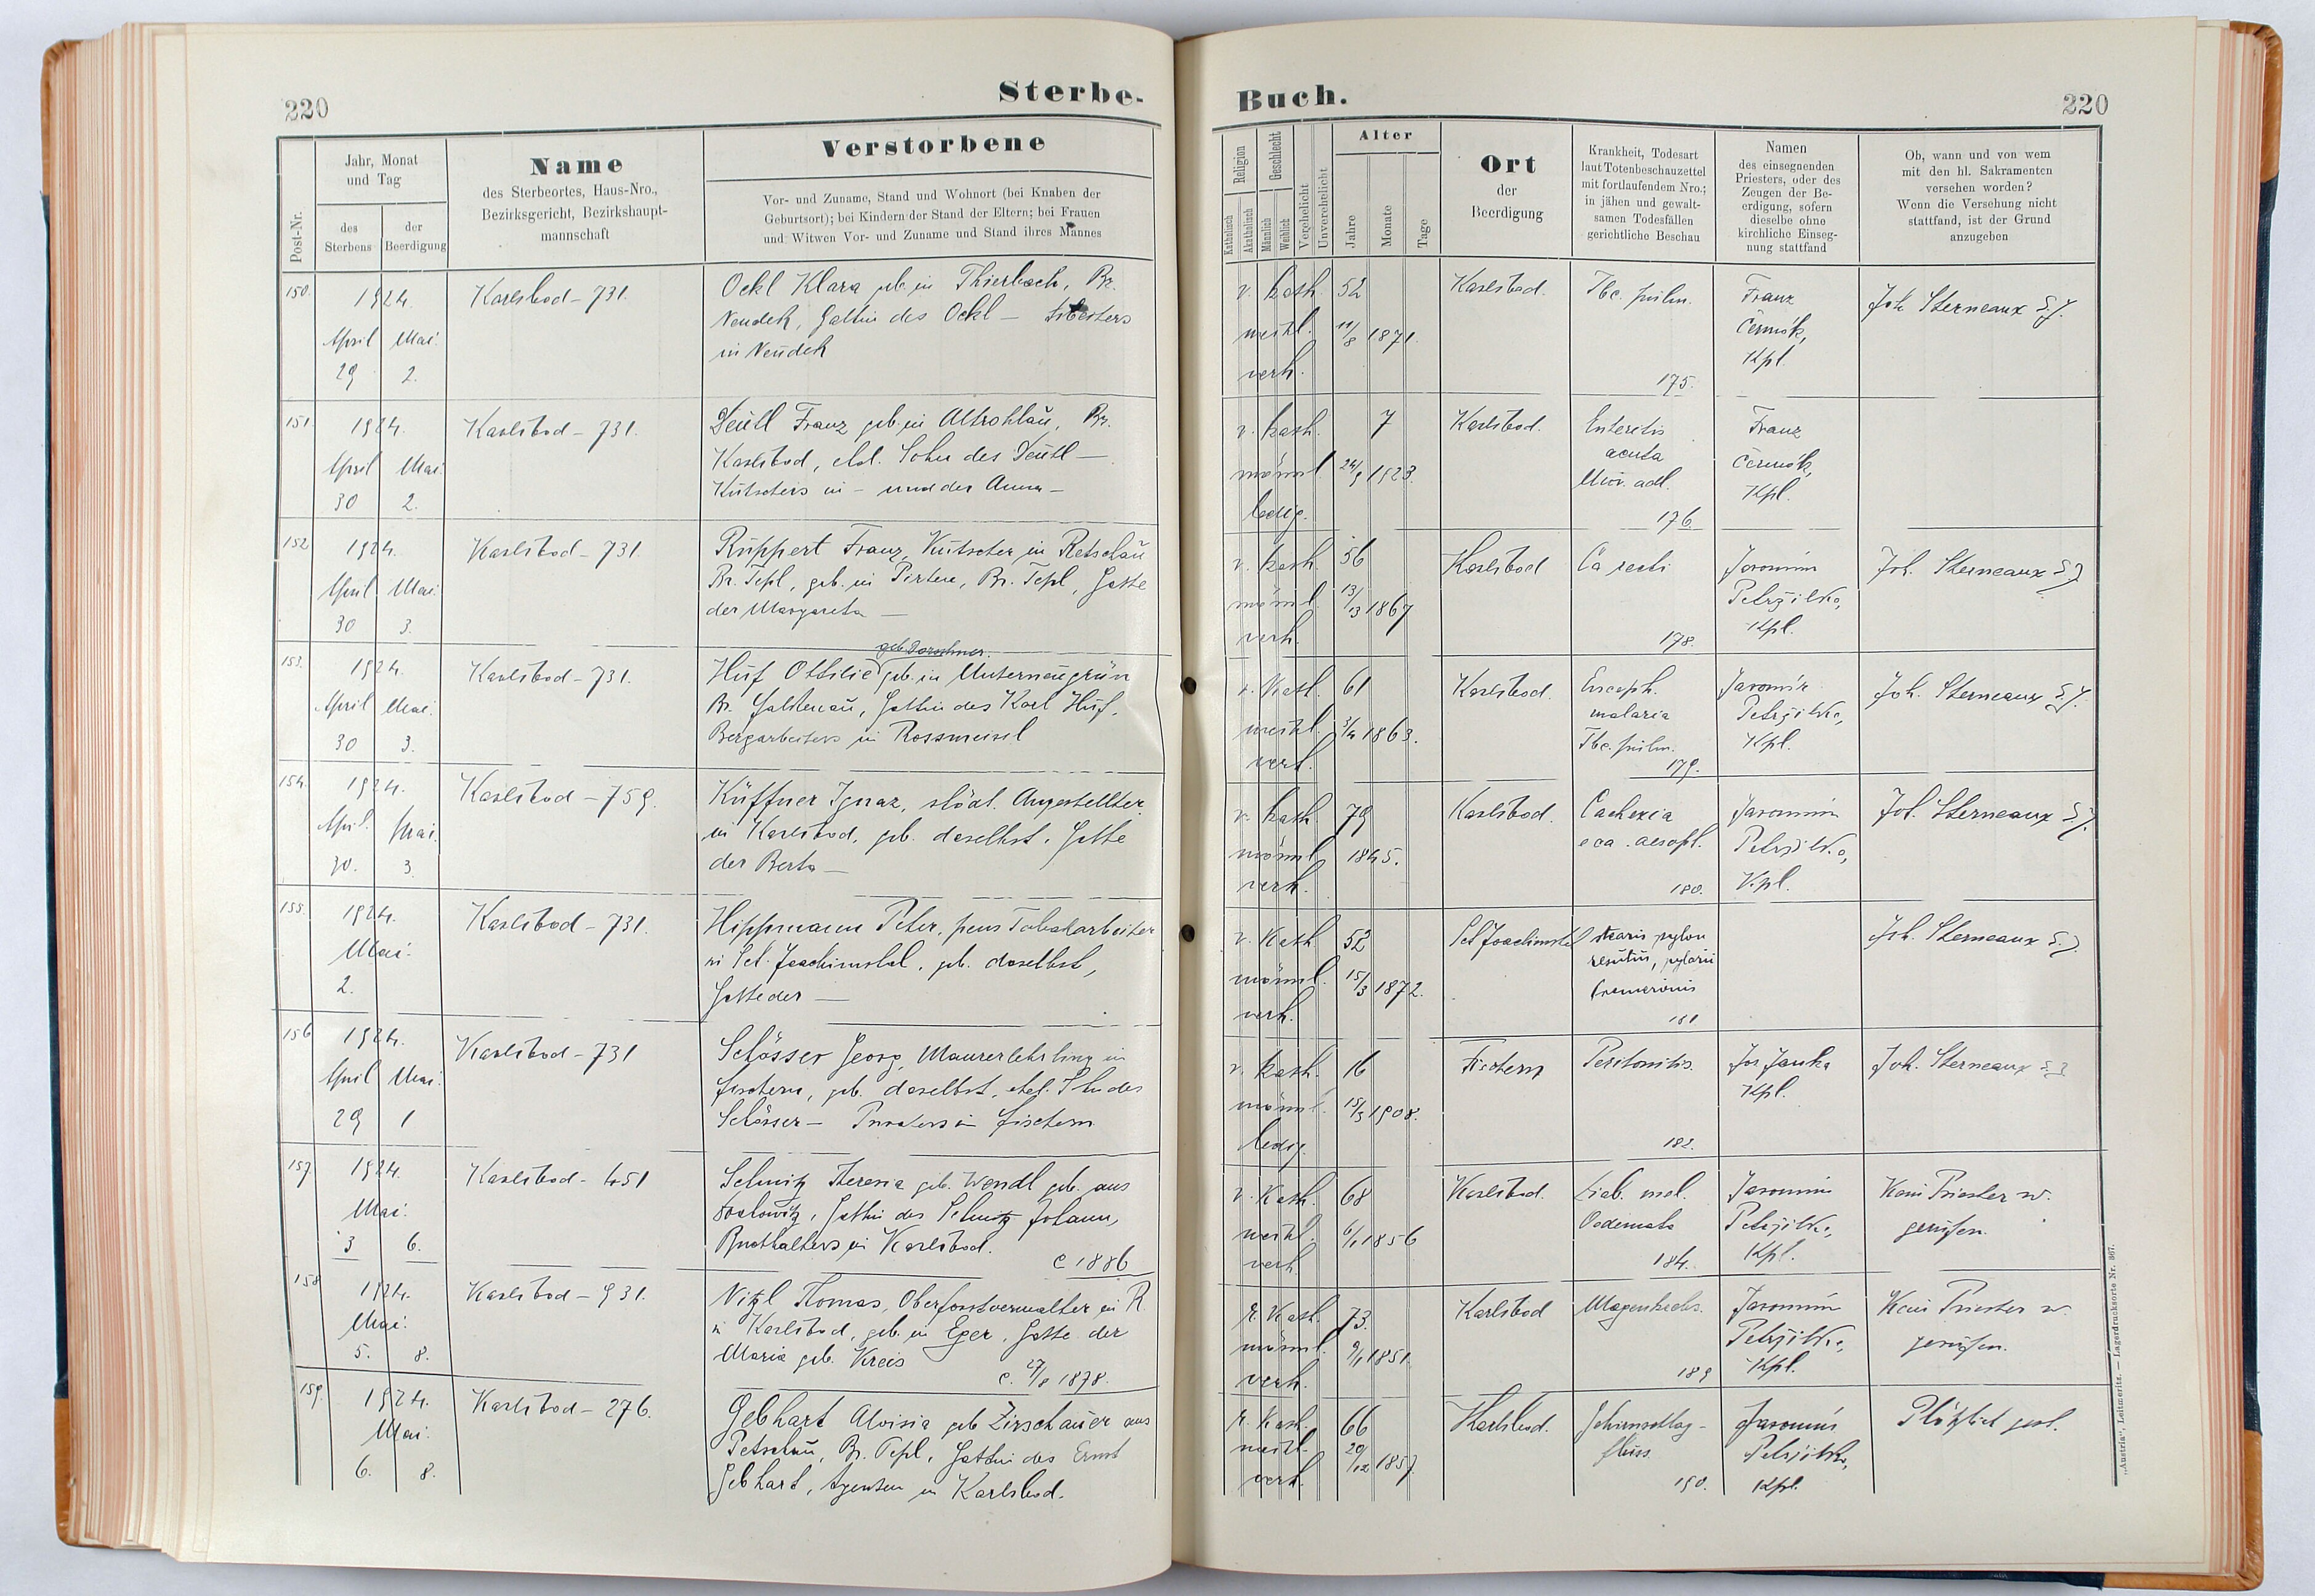 220
Sterbe-
Post-Nr.
Jahr, Monat
und Tag
des
Sterbens
der
Beerdigung
Name
des Sterbeortes, Haus-Nro.,
Bezirksgericht, Bezirkshaupt-
mannschaft
Verstorbene
Vor- und Zuname, Stand und Wohnort (bei Knaben der
Geburtsort); bei Kindern der Stand der Eltern; bei Frauen
und Witwen Vor- und Zuname und Stand ihres Mannes
150.
1924.
April Mai.
29 2.
Karlsbad - 731.
Öckl Klara geb. in Thierbach, Bz.
Neudek, Gattin des Öckl —
in Neudek
151.
1924.
April Mai.
30 2.
Karlsbad - 731.
Deütl Franz geb. in Altrohlaū, Bz.
Karlsbad, ehel. Sohn des Deütl —
Kutschers in - und der Anna —
152
1924.
April Mai.
30 3.
Karlsbad - 731.
Rūppert Franz, Kūtscher in Petschaū
Bz. Tepl, geb. in Pirten, Bz. Tepl, Gatte
der Margareta —
153.
1924.
April Mai.
30 3.
Karlsbad - 731.
geb. Dorschner.
Hūf Ottilie geb. in Unterneūgrün
Bz. Falkenaū, Gattin des Karl Hūf,
Bergarbeiters in Rossmeisel
154.
1924.
April. Mai.
30. 3.
Karlsbad - 759.
Küffner Ignaz, städt. Angestellter
in Karlsbad, geb. daselbst, Gatte
der Berta —
155.
1924.
Mai.
2.
Karlsbad - 731.
Hippmann Peter, pens Tabakarbeiter
in Sct. Joachimstal, geb. daselbst,
Gatte der —
156
1924.
April Mai.
29 1
Karlsbad - 731
Schösser Georg, Maurerlehrling in
Fischern, geb. daselbst, ehel. S. des
Schösser — Privaters in Fischern
157
1924.
Mai.
3 6.
Karlsbad - 451
Schmitz Theresia geb. Wendl geb. aus
Gattin des Schmitz Johann,
Buchhalters in Karlsbad.
C 1886
158
1924.
Mai.
5. 8.
Karlsbad - 931.
Nitzl Thomas, Oberforstverwalter in R.
in Karlsbad, geb. in Eger, Gatte der
Maria geb. Kreis
C. 27/8 1878.
159.
1924.
Mai.
6. 8.
Karlsbad - 276.
Gebhart Aloisia geb Zirschaūer aus
Petschaū, Bz. Tepl, Gattin des Ernst
Gebhart, Agenten in Karlsbad.
Buch.
220
Religion
Katholisch
Akatholisch
Geschlecht
Männlich
Weiblich
Verehelicht
Unverehelicht
Alter
Jahre
Monate
Tage
Ort
der
Beerdigung
Krankheit, Todesart
laut Totenbeschauzettel
mit fortlaufendem Nro.;
in jähen und gewalt-
samen Todesfällen
gerichtliche Beschau
Namen
des einsegnenden
Priesters, oder des
Zeugen der Be-
erdigung, sofern
dieselbe ohne
kirchliche Einseg-
nung stattfand
Ob, wann und von wem
mit den hl. Sakramenten
versehen worden?
Wenn die Versehung nicht
stattfand, ist der Grund
anzugeben
r. kath.
weibl.
verh.
52
11/8 1871.
Karlsbad.
Tbc. pulm.
175.
Franz
Čermák,
Kpl.
Joh Sterneaux S.J.
r. kath.
männl.
ledig.
7
24/9 1923.
Karlsbad.
Enteretis
acuta
176.
Franz
Čermák,
Kpl.
r. kath.
männl.
verh.
56
13/3 1867
Karlsbad
Ca recti
178.
Jaromir
Petržilka,
Kpl.
Joh. Sterneaux S.J
r. Kath.
weibl.
verh.
61
3/4 1863.
Karlsbad.
Enceph.
malacia
Tbc. pulm.
179.
Jaromir
Petržilka,
Kpl.
Joh. Sterneaux S.J.
r. kath.
männl
verh.
79
1845.
Karlsbad.
Cachexia
180.
Jaromir
Petržilka,
Kpl.
Joh. Sterneaux S.J.
r. Kath
männl.
verh.
52
15/3 1872.
Sct Joachimstal
181
Joh. Sterneaux S.J
r. kath.
männl.
ledig.
16
15/3 1908.
Fischern
Peritonitis.
182.
Jos Janka
Kpl.
Joh. Sterneaux S.J
r. Kath.
weibl.
verh
68
6/1 1856
Karlsbad.
Diab. mel.
184.
Jaromir
Petržilka,
Kpl.
Kein Priester w.
gerūfen.
r. Kath.
männl.
verh.
73.
9/1 1851.
Karlsbad
Magenkrebs.
189
Jaromir
Petržilka,
Kpl.
Kein Priester w.
gerūfen.
r. Kath.
weibl.
verh.
66
20/12 1857.
Karlsbad.
Gehirnschlag-
flūss.
190.
Jaromir
Petržilka,
Kpl.
Plötzlich gest.
„Austria", Leitmeritz. — Lagerdrucksorte Nr. 367.